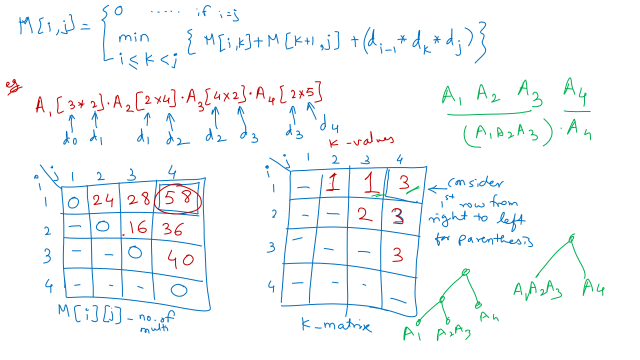 M[i,j] = { 0 ..... if i=j
min { M[i,k] + M[k+1,j] + (d_{i-1} * d_k * d_j) }
i ≤ k < j
eg
A₁[3*2]·A₂[2×4]·A₃[4×2]·A₄[2×5]
d₀ d₁ d₁ d₂ d₂ d₃ d₃ d₄
A₁ A₂ A₃ A₄
(A₁A₂A₃)·A₄
K-values
j 1 2 3 4
i
1 0 24 28 58
2 - 0 16 36
3 - - 0 40
4 - - - 0
M[i][j] - no. of
mult
j 1 2 3 4
i
1 - 1 1 3
2 - - 2 3
3 - - - 3
4 - - - -
K-matrix
← consider
1st row from
right to left
for parenthesis
A₁ A₂A₃ A₄
A₁A₂A₃ A₄